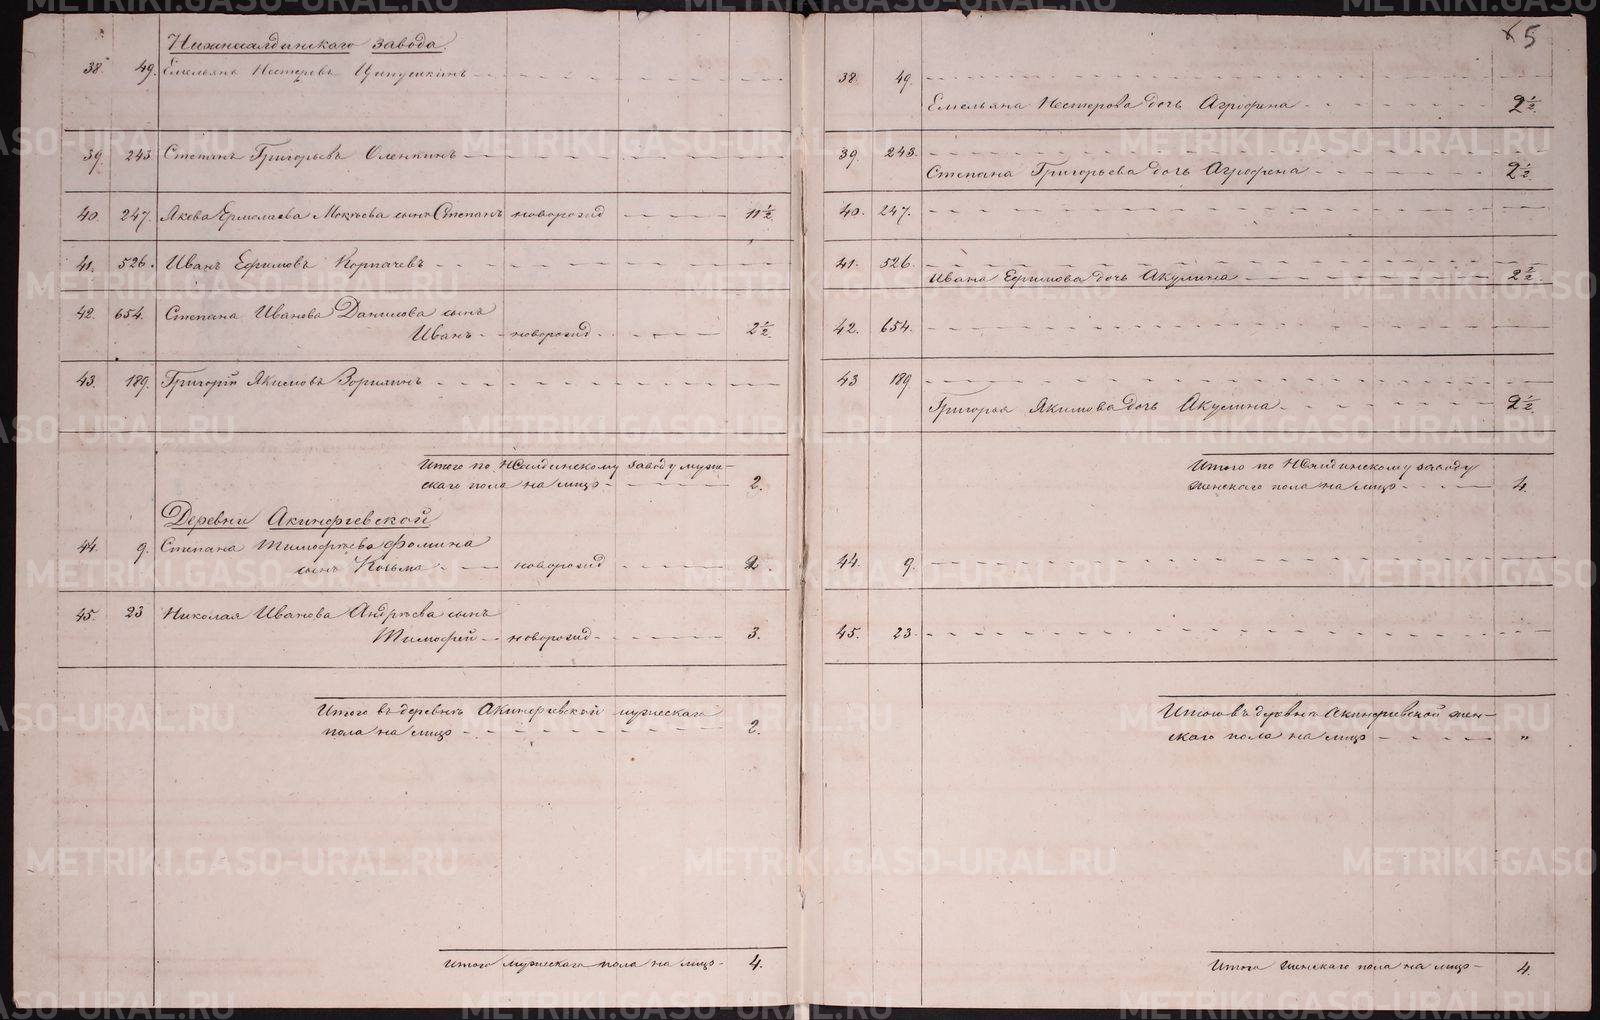 Нижнесалдинскаго завода.
38. 49. Емельянъ Нестеровъ Ципушкинъ
39. 243. Степанъ Григорьевъ Оленкинъ
40. 247. Якова Ермолаева Мокѣева сынъ Степанъ новорожд 11 1/2
41. 526. Иванъ Ефимовъ Корпачевъ
42. 654. Степана Иванова Данилова сынъ
Иванъ новорожд. 2 1/2
43. 189. Григорій Якимовъ Зорихинъ
Итого по НСалдинскому заводу муже-
скаго пола на лицо 2.
Деревни Акинфіевской
44. 9. Степана Тимофѣева Фомина
сынъ Козьма новорожд 2
45. 23 Николая Иванова Андрѣева сынъ
Тимофей новорожд 3.
Итого въ деревнѣ Акинфіевской мужескаго
пола на лицо 2.
Итого мужескаго пола на лицо 4.
5
38 49.
Емельяна Нестерова дочь Агрофена 2 1/2
39. 243.
Степана Григорьева дочь Агрофена 2 1/2
40. 247.
41. 526.
Ивана Ефимова дочь Акулина 2 1/2
42. 654.
43 189
Григорья Якимова дочь Акулина 2 1/2
Итого по НСалдинскому заводу
женскаго пола на лицо 4.
44. 9.
45. 23.
Итого въ деревнѣ Акинфіевской жен-
скаго пола на лицо "
Итого женскаго пола на лицо 4.
METRIKI.GASO-URAL.RU